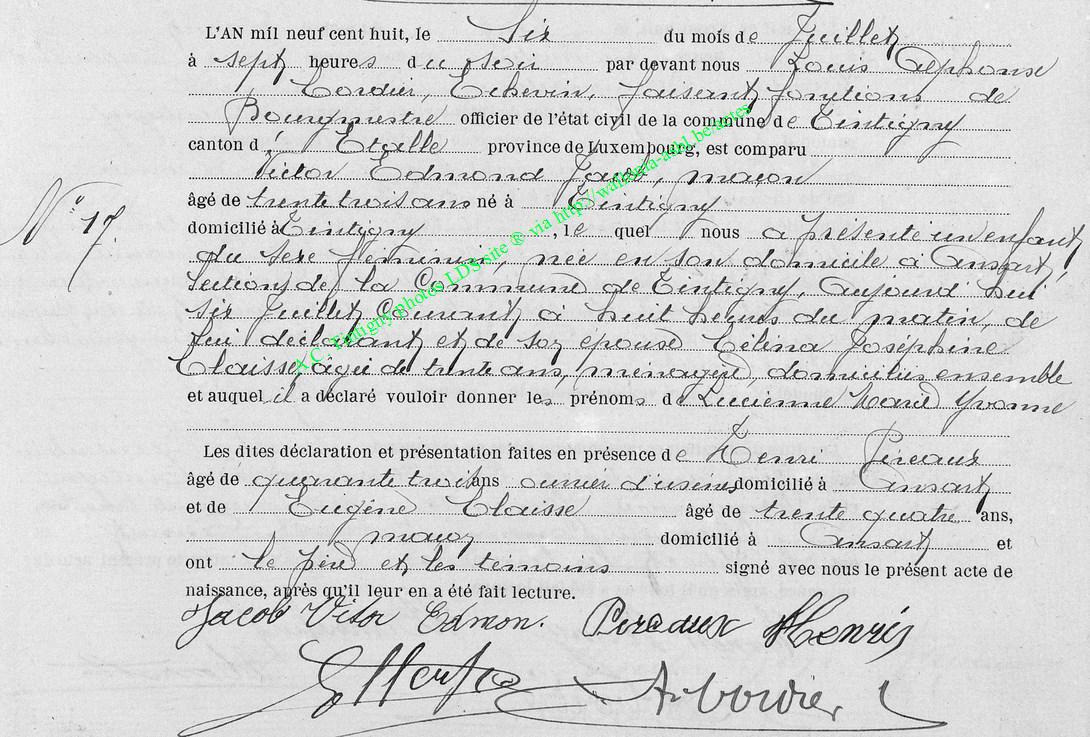 L'AN mil neuf cent huit, le Six du mois de Juillet
à sept heures du soir par devant nous Louis Alphonse
Cordier, Echevin, faisant fonctions de
Bourgmestre officier de l'état civil de la commune de Tintigny
canton d' Etalle province de Luxembourg, est comparu
Victor Edmond Jacob, maçon
âgé de trente trois ans né à Tintigny
N° 17.
domicilié à Tintigny, le quel nous a présenté un enfant
du sexe féminin, née en son domicile à Ansart,
section de la Commune de Tintigny, aujourd'hui
six Juillet courant à huit heures du matin, de
lui déclarant et de son épouse Célina Joséphine
Claisse, agée de trente ans, ménagère, domiciliés ensemble
et auquel il a déclaré vouloir donner les prénoms de Lucienne Marie Yvonne
Les dites déclaration et présentation faites en présence de Henri Pireaux
âgé de quarante trois ans ouvrier d'usines domicilié à Ansart
et de Eugène Claisse âgé de trente quatre ans,
maçon domicilié à Ansart et
ont le père et les témoins signé avec nous le présent acte de
naissance, après qu'il leur en a été fait lecture.
Jacob Vitor Edmon. Pireaux Henri
A. Cordier
A.C. Tintigny photos LDS site ® via http://wallonia-asbl.be/actes